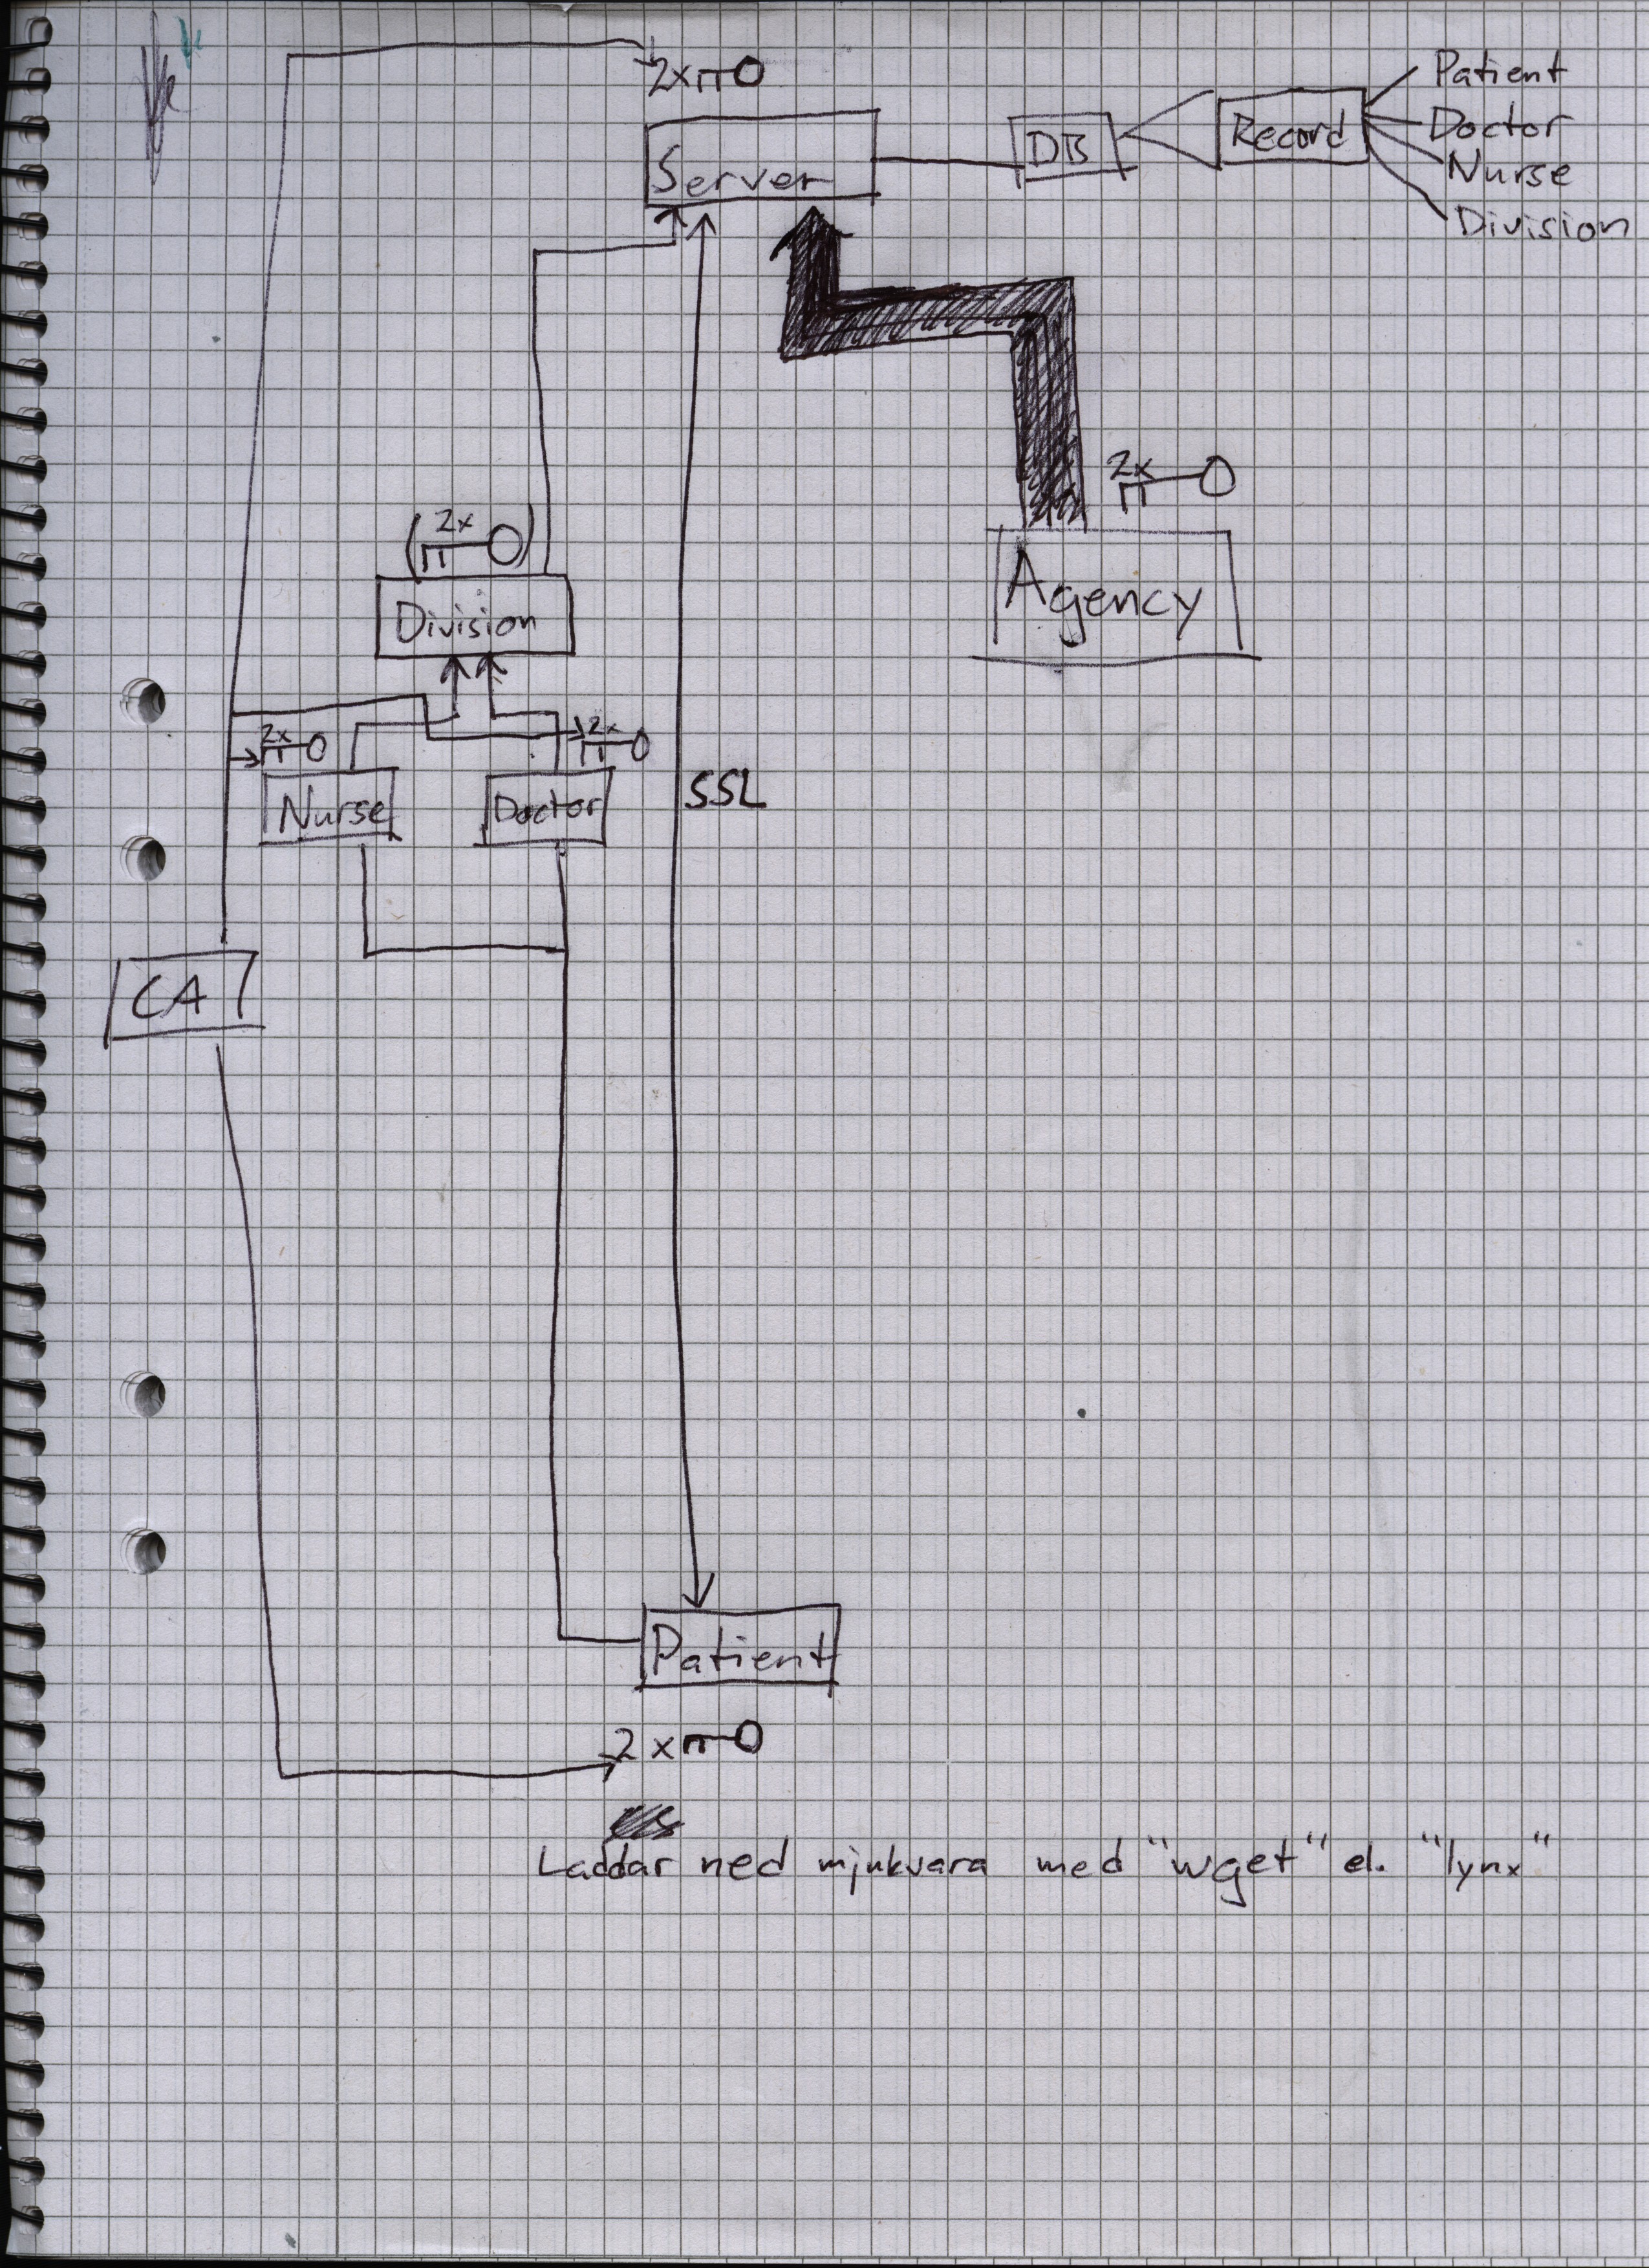 2x
Server
DB
Record
Patient
Doctor
Nurse
Division
2x
Agency
(2x)
Division
2x
2x
Nurse
Doctor
SSL
CA
Patient
2x
Laddar ned mjukvara med "wget" el. "lynx"